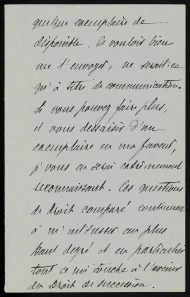 quelque exemplaire de
disponible, de vouloir bien
me l'envoyer, ne serait-ce
qu'à titre de communication.
Si vous pouvez faire plus,
et vous dessaisir d'un
exemplaire en ma faveur,
je vous en serai extrêmement
reconnaissant. Ces questions
de Droit comparé continuent
à m'intéresser au plus
haut degré et en particulier
tout ce qui touche à l'avenir
du Droit de succession.